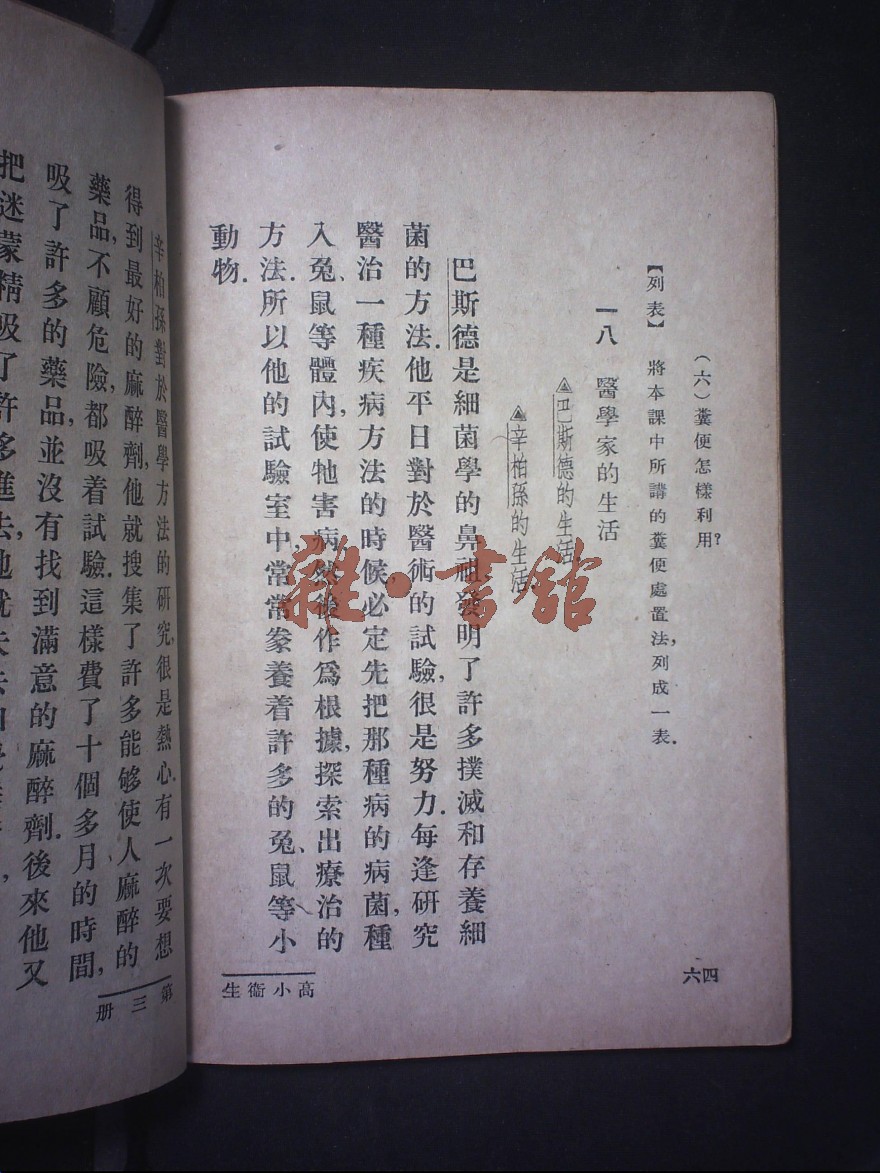 (六)糞便怎樣利用?
【列表】 將本課中所講的糞便處置法,列成一表.
一八 醫學家的生活
巴斯德的生活.
辛柏孫的生活
巴斯德是細菌學的鼻祖,發明了許多撲滅和存養細
菌的方法.他平日對於醫術的試驗,很是努力.每逢研究
醫治一種疾病方法的時候,必定先把那種病的病菌,種
入兔、鼠等體內,使牠害病,然後作爲根據,探索出療治的
方法.所以他的試驗室中,常常豢養着許多的兔、鼠等小
動物.
高小衞生
六四
雜·書館
辛柏孫對於醫學方法的研究,很是熱心.有一次要想
得到最好的麻醉劑,他就搜集了許多能够使人麻醉的
藥品,不顧危險,都吸着試驗.這樣費了十個多月的時間,
吸了許多的藥品,並沒有找到滿意的麻醉劑.後來他又
把迷蒙精吸了許多進去,他就失去
第三册